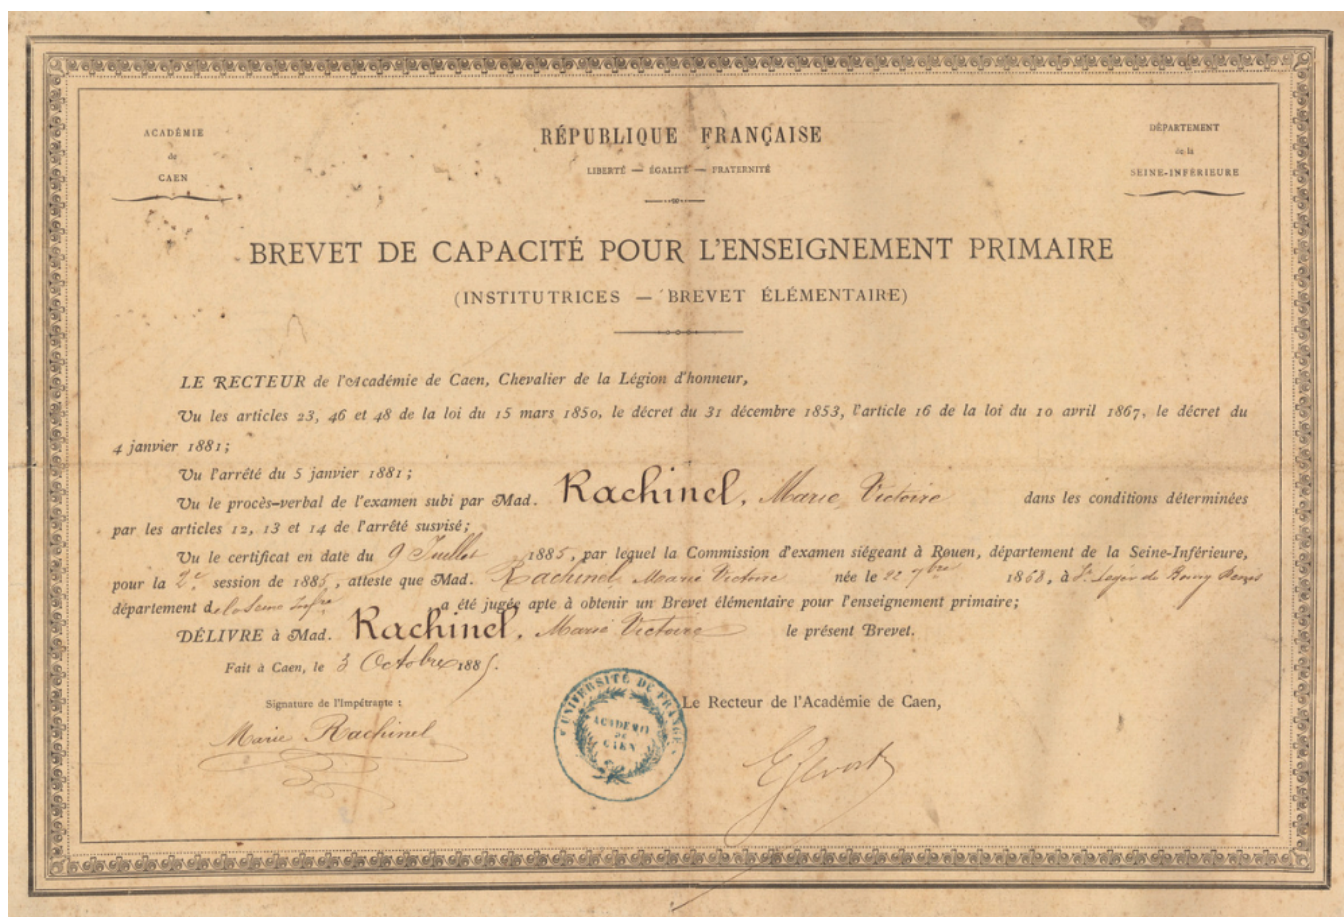 ACADÉMIE
de
CAEN
RÉPUBLIQUE FRANÇAISE
LIBERTÉ — ÉGALITÉ — FRATERNITÉ
DÉPARTEMENT
de la
SEINE-INFÉRIEURE
BREVET DE CAPACITÉ POUR L'ENSEIGNEMENT PRIMAIRE
(INSTITUTRICES — BREVET ÉLÉMENTAIRE)
LE RECTEUR de l'Académie de Caen, Chevalier de la Légion d'honneur,
Vu les articles 23, 46 et 48 de la loi du 15 mars 1850, le décret du 31 décembre 1853, l'article 16 de la loi du 10 avril 1867, le décret du
4 janvier 1881;
Vu l'arrêté du 5 janvier 1881;
Vu le procès-verbal de l'examen subi par Mad. Rachinel, Marie Victoire dans les conditions déterminées
par les articles 12, 13 et 14 de l'arrêté susvisé;
Vu le certificat en date du 9 Juillet 1885, par lequel la Commission d'examen siégeant à Rouen, département de la Seine-Inférieure,
pour la 2e session de 1885, atteste que Mad. Rachinel Marie Victoire née le 22 7bre 1868, à St Léger du Bourg Denis
département de la Seine Infre a été jugée apte à obtenir un Brevet élémentaire pour l'enseignement primaire;
DÉLIVRE à Mad. Rachinel, Marie Victoire le présent Brevet.
Fait à Caen, le 3 Octobre 1885.
Signature de l'Impétrante :
Marie Rachinel
UNIVERSITÉ DE FRANCE
ACADÉMIE
DE
CAEN
Le Recteur de l'Académie de Caen,